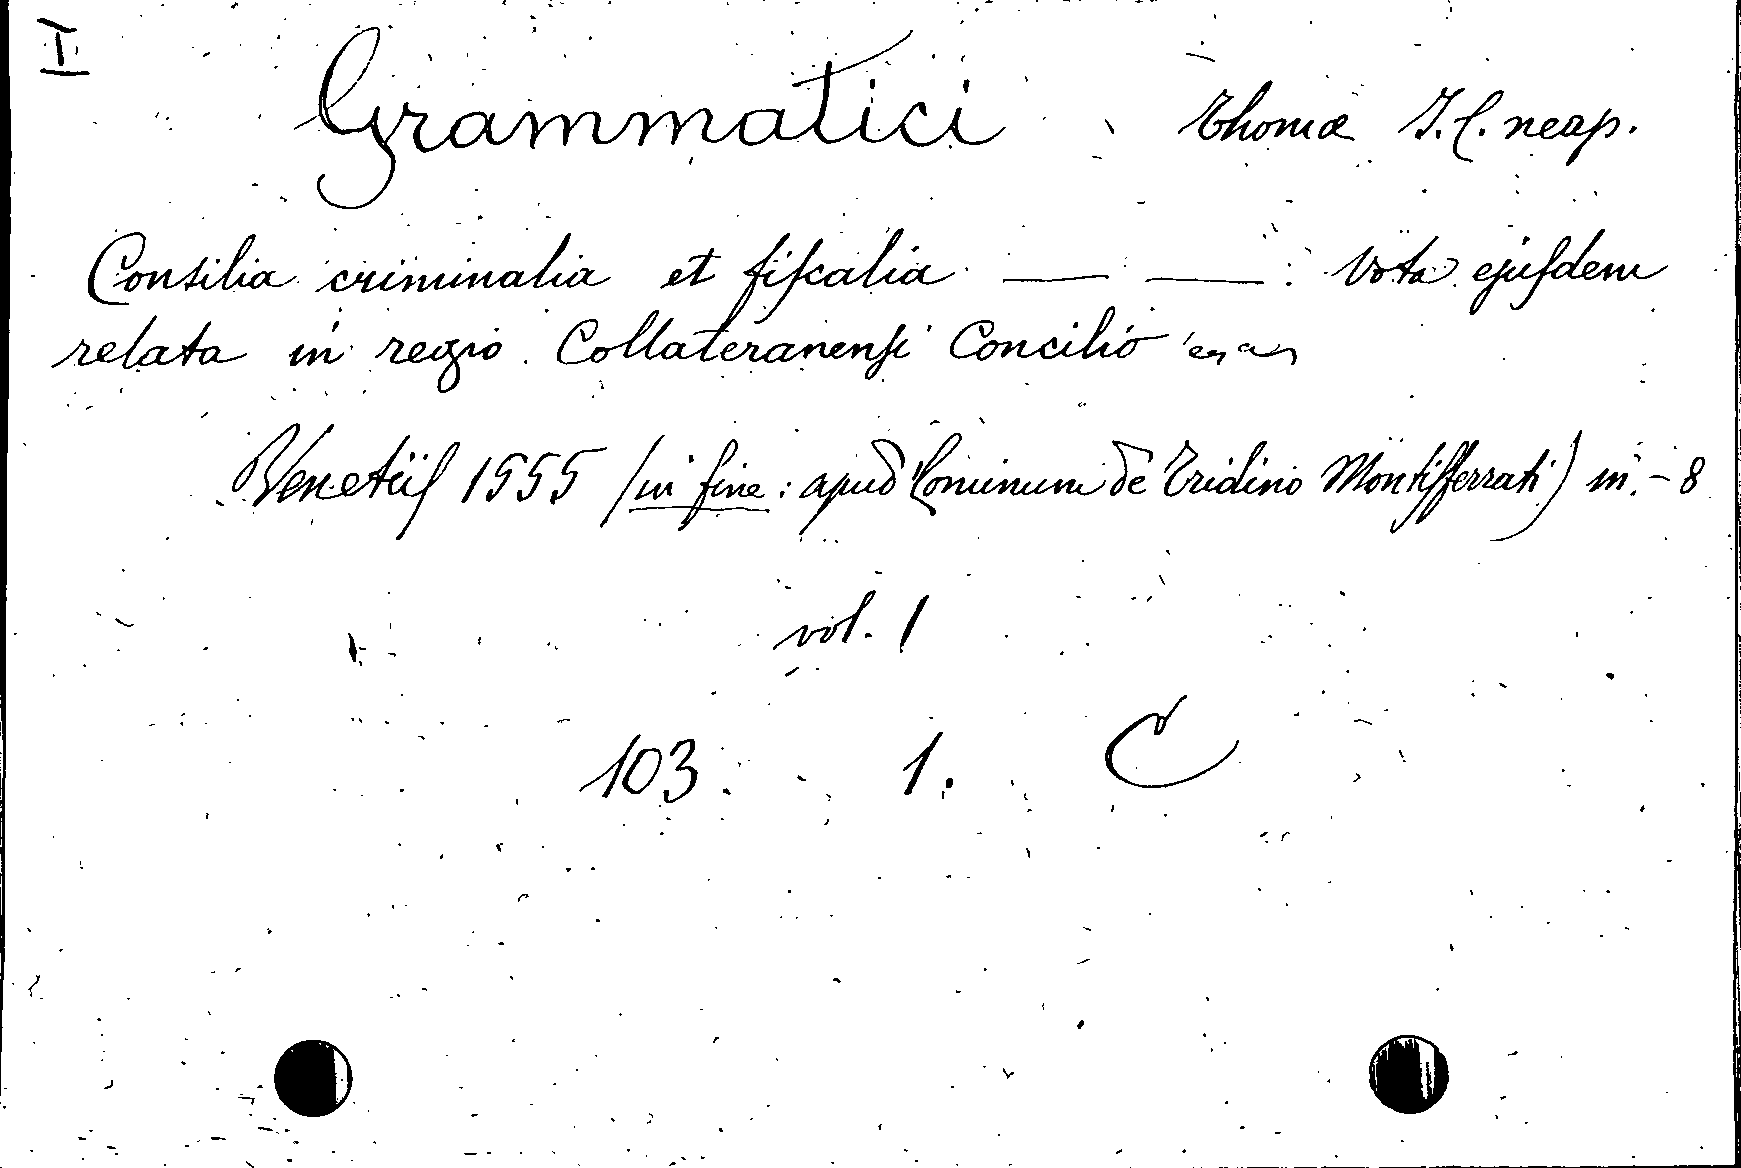 I
Grammatici Thomæ J. C. neap.
Consilia criminalia et fiſcalia — — : Vota ejuſdem
relata in regio Collateranenſi Concilio
Venetiiſ 1555 (in fine: apud Cominum de Tridino Montiſferrati) in-8
vol. 1
103. 1. C